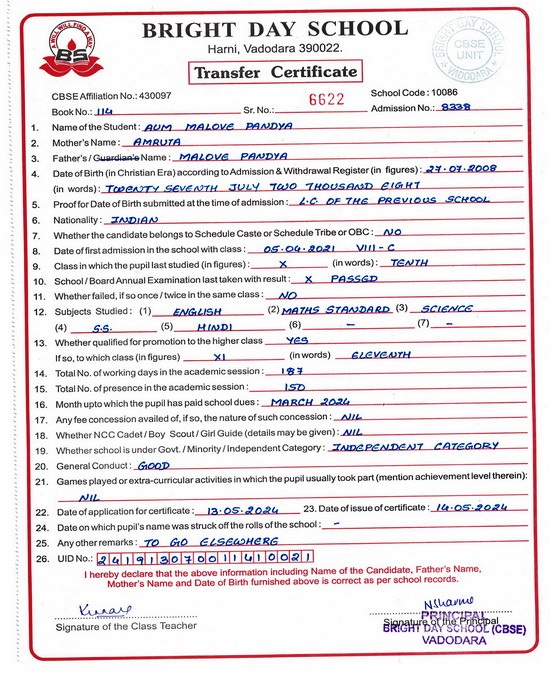 A WILL WILL FIND A WAY
BS
BRIGHT DAY SCHOOL
Harni, Vadodara 390022.
Transfer Certificate
BRIGHT DAY SCHOOL
CBSE
UNIT
VADODARA
CBSE Affiliation No.: 430097
6622
School Code : 10086
Book No.: 114 Sr. No.: Admission No.: 8338
1. Name of the Student : AUM MALOVE PANDYA
2. Mother's Name : AMRUTA
3. Father's / Guardian's Name : MALOVE PANDYA
4. Date of Birth (in Christian Era) according to Admission & Withdrawal Register (in figures) : 27-07-2008
(in words) : TWENTY SEVENTH JULY TWO THOUSAND EIGHT
5. Proof for Date of Birth submitted at the time of admission : L.C. OF THE PREVIOUS SCHOOL
6. Nationality : INDIAN
7. Whether the candidate belongs to Schedule Caste or Schedule Tribe or OBC : NO
8. Date of first admission in the school with class : 05.04.2021 VIII-C
9. Class in which the pupil last studied (in figures) : X (in words) : TENTH
10. School / Board Annual Examination last taken with result : X PASSED
11. Whether failed, if so once / twice in the same class : NO
12. Subjects Studied : (1) ENGLISH (2) MATHS STANDARD (3) SCIENCE
(4) S.S. (5) HINDI (6) – (7) –
13. Whether qualified for promotion to the higher class YES
If so, to which class (in figures) XI (in words) ELEVENTH
14. Total No. of working days in the academic session : 187
15. Total No. of presence in the academic session : 150
16. Month upto which the pupil has paid school dues : MARCH 2024
17. Any fee concession availed of, if so, the nature of such concession : NIL
18. Whether NCC Cadet / Boy Scout / Girl Guide (details may be given) : NIL
19. Whether school is under Govt. / Minority / Independent Category : INDEPENDENT CATEGORY
20. General Conduct : GOOD
21. Games played or extra-curricular activities in which the pupil usually took part (mention achievement level therein):
NIL
22. Date of application for certificate : 13.05.2024 23. Date of issue of certificate : 14.05.2024
24. Date on which pupil's name was struck off the rolls of the school : –
25. Any other remarks : TO GO ELSEWHERE
26. UID No.: 241913070011410021
I hereby declare that the above information including Name of the Candidate, Father's Name,
Mother's Name and Date of Birth furnished above is correct as per school records.
Signature of the Class Teacher
NSharma
Signature of the Principal
PRINCIPAL
BRIGHT DAY SCHOOL (CBSE)
VADODARA